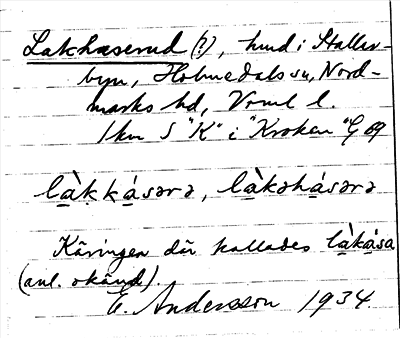 Lakhaserud (?), hmd i Staller-
byn, Holmedals sn, Nord-
marks hd, Vrml l.
1 km S "K" i "Kroken" G 09
làkkásərə, làkəhásərə
Käringen där kallades làkása
(anl. okänd).
E. Andersson 1934.